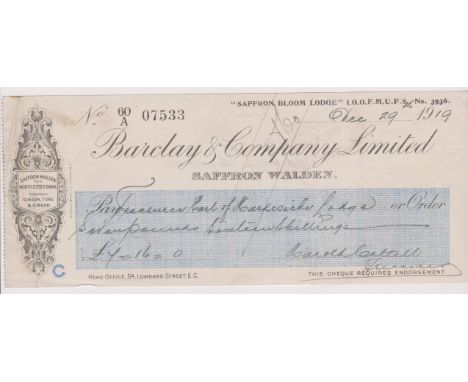 "SAFFRON BLOOM LODGE" I.O.O.F.M.U.F.S. No. 3936.
No 60/A 07533
Dec 29th 1919
Barclay & Company Limited
SAFFRON WALDEN.
SAFFRON WALDEN
AND
NORTH ESSEX BANK
FORMERLY
GIBSON, TUKE
& GIBSON
Pay Treasurer of Lodge or Order
Seven Pounds Sixteen Shillings
£7=16=0
Harold
Treasurer
C
HEAD OFFICE, 54, LOMBARD STREET, E.C.
THIS CHEQUE REQUIRES ENDORSEMENT.